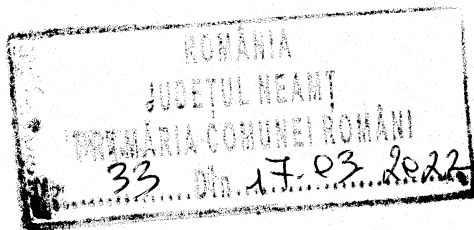 ROMÂNIA
JUDEȚUL NEAMȚ
PRIMĂRIA COMUNEI ROMÂNI
Nr. 33 Din 17-03 2022